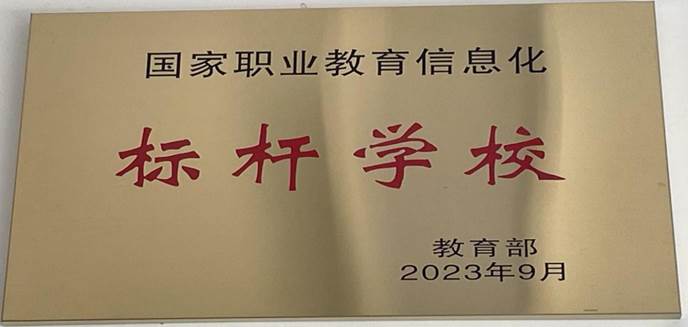 国家职业教育信息化
标杆学校
教育部
2023年9月